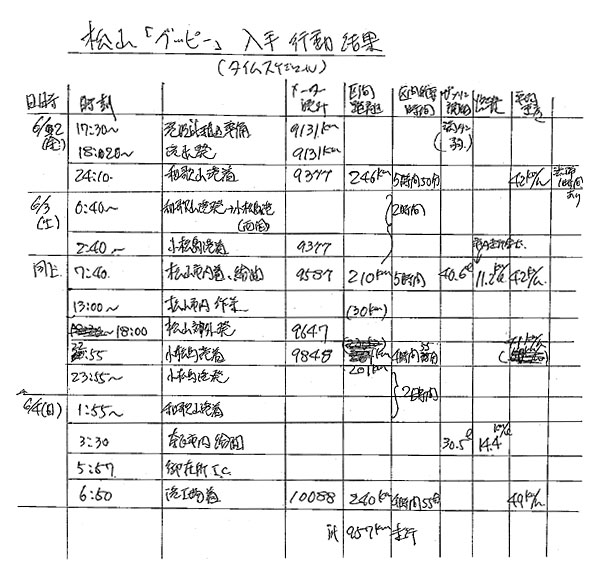 松山「グッピー」入手行動結果
(タイムスケジュール)
日時 時刻 メーター 区間距離 区間所要時間 ガソリン 燃費
6/2(金) 17:30~ 9131km
18:020~ 9131km
24:10 和歌山港着 9377 246km 5時間50分 42km/h
6/3(土) 0:40~ 和歌山港発→小松島港 2時間
2:40~ 小松島港着 9377
同上 7:40~ 松山市内着、給油 9587 210km 5時間 40.6ℓ 11.2 42km/h
13:00~ 松山市内作業 (30km)
~18:00 松山郊外発 9647
22:55 小松島港着 9848 201km 4時間55分 41km/h
23:55~ 小松島港発
6/4(日) 1:55~ 和歌山港着 2時間
3:30 市内給油 30.5ℓ 14.4km/ℓ
5:57 御在所I.C.
6:50 10088 240km 4時間55分 49km/h
計 957km 走行